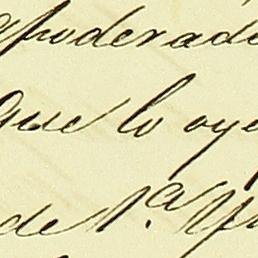 apoderado
que lo oye
de N.ª